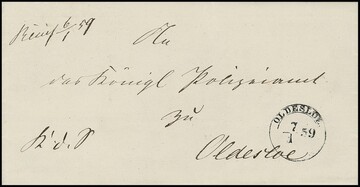 6/1 59
An
das Königl Polizeiamt
zu
K. d. S
Oldesloe
OLDESLOE
7/1 59